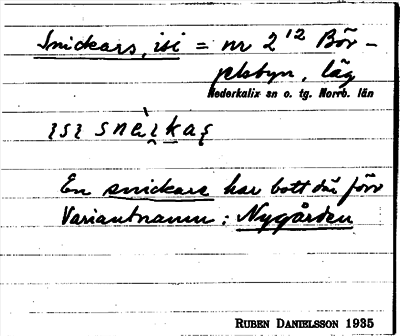 Snickars, isi = nr 2¹² Bör-
jelsbyn, läg
Nederkalix sn o. tg. Norrb. län
En snickare har bott där förr
Variantnamn: Nygården
RUBEN DANIELSSON 1935